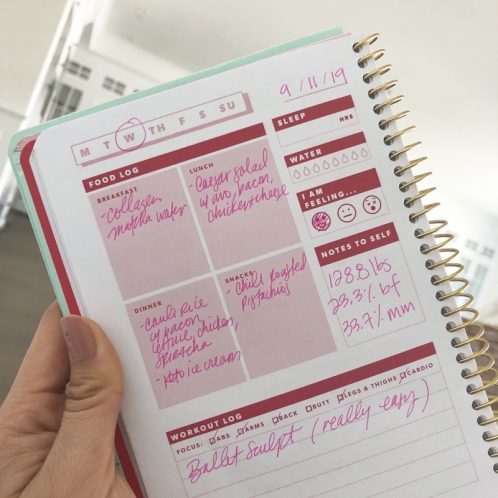 9/11/19
M T W TH F S SU
SLEEP
HRS
WATER
I AM
FEELING...
FOOD LOG
BREAKFAST
-collagen
matcha water
LUNCH
-caesar salad
w/ avo, bacon,
chicken + cheese
DINNER
-cauli rice
w/ bacon,
lettuce, chicken,
sriracha
-keto ice cream
SNACKS
-chili roasted
pistachios
NOTES TO SELF
128.8 lbs
23.3% bf
33.7% mm
WORKOUT LOG
FOCUS: ABS ARMS BACK BUTT LEGS & THIGHS CARDIO
Ballet Sculpt (really easy)